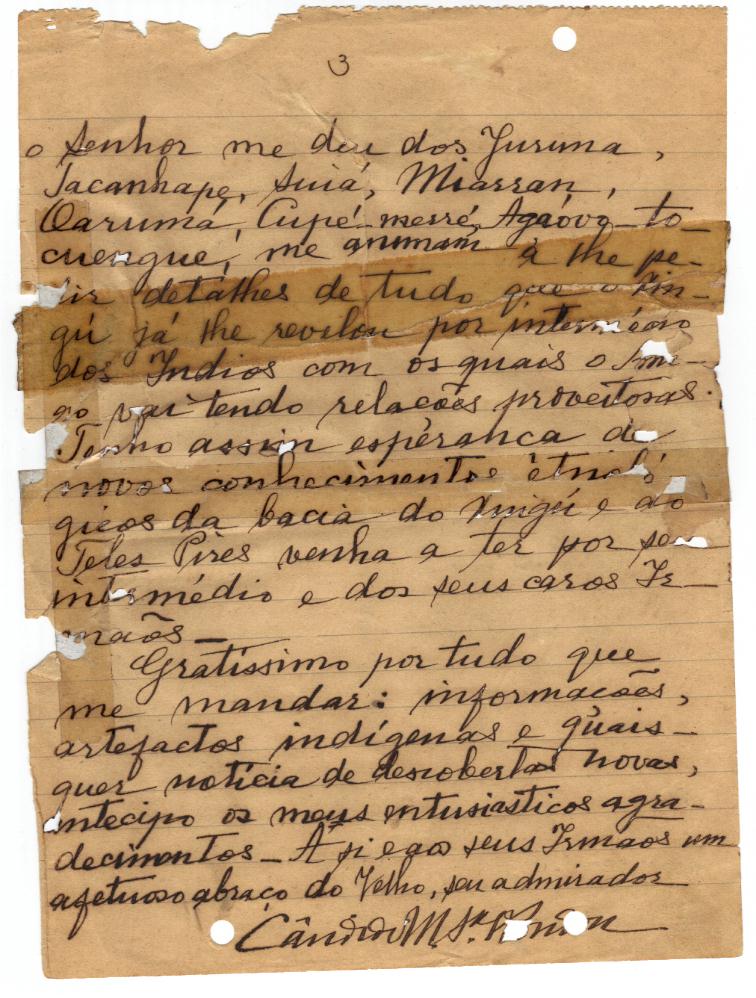 3
o Senhor me deu dos Juruna,
Tacanhape, Suiá, Miarran,
Oarumá, Cupé-merré, Agaóvo-to-
cuengue, me animam á lhe pe-
dir detalhes de tudo que o Xin-
gú já lhe revelou por intermédio
dos Indios com os quais o Ami-
go vai tendo relacões proveitosas.
Tenho assim esperanca de
novos conhecimentos étnoló
gicos da bacia do Xingú e do
Teles Pires venha a ter por seu
intermédio e dos seus caros Ir-
maõs_
Gratíssimo por tudo que
me mandar: informacões,
artefactos indígenas e quais-
quer notícia de descobertas novas,
antecipo os meus entusiásticos agra-
decimentos_ Á si e aos seus Irmaos um
afetuoso abraço do Velho, seu admirador
Cândido M. Sª. Rondon